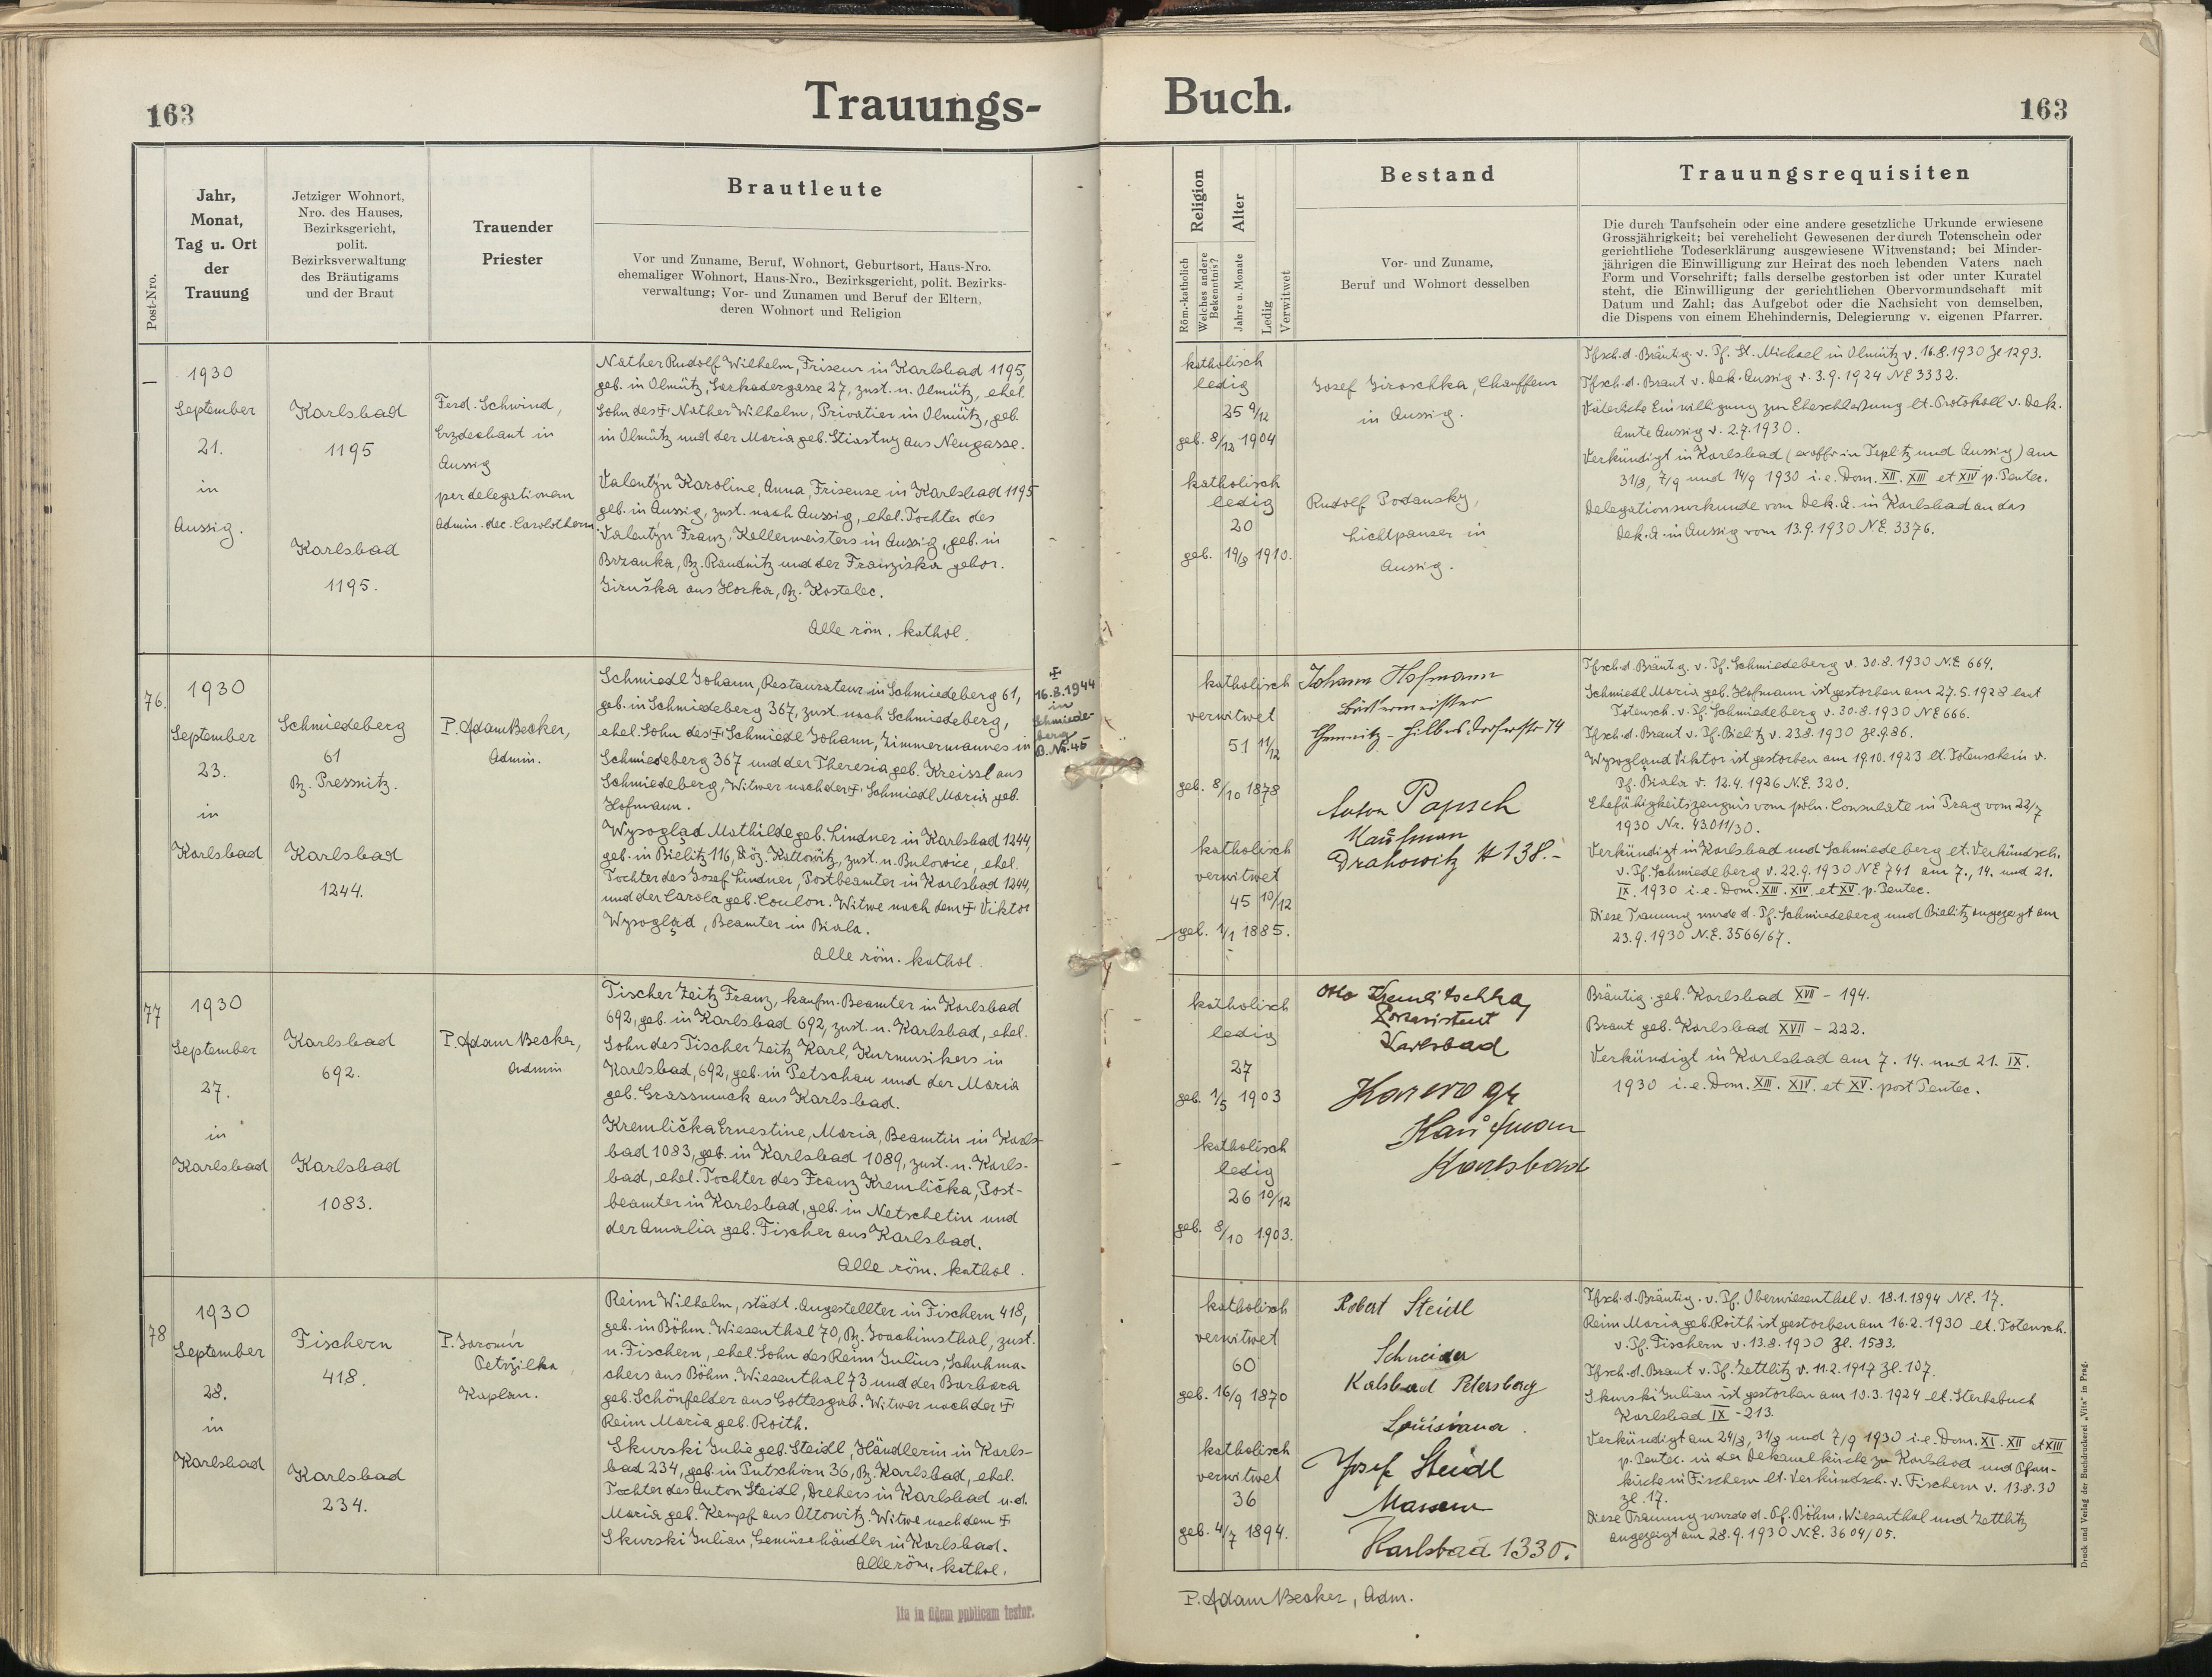 163
Trauungs-
Post-Nro.
Jahr,
Monat,
Tag u. Ort
der
Trauung
Jetziger Wohnort,
Nro. des Hauses,
Bezirksgericht,
polit.
Bezirksverwaltung
des Bräutigams
und der Braut
Trauender
Priester
Brautleute
Vor und Zuname, Beruf, Wohnort, Geburtsort, Haus-Nro.
ehemaliger Wohnort, Haus-Nro., Bezirksgericht, polit. Bezirks-
verwaltung; Vor- und Zunamen und Beruf der Eltern,
deren Wohnort und Religion
—
1930
September
21.
in
Aussig.
Karlsbad
1195
Karlsbad
1195.
Ferd. Schwind,
Erzdechant in
Aussig
per delegationem
Admin. dec. Carolotherm.
Nather Rudolf Wilhelm, Friseur in Karlsbad 1195,
geb. in Olmütz, Sarkandergasse 27, zust. n. Olmütz, ehel.
Sohn des ✝ Nather Wilhelm, Privatier in Olmütz, geb.
in Olmütz und der Maria geb. Stiastny aus Neugasse.
Valentýn Karoline, Anna, Friseuse in Karlsbad 1195
geb. in Aussig, zust. nach Aussig, ehel. Tochter des
Valentýn Franz, Kellermeisters in Aussig, geb. in
Brzanka, Bz. Raudnitz und der Franziska gebor.
Jiruška aus Horka, Bz. Kostelec.
Alle röm. kathol.
76.
1930
September
23.
in
Karlsbad
Schmiedeberg
61
Bz. Pressnitz.
Karlsbad
1244.
P. Adam Becker,
Admin.
Schmiedl Johann, Restaurateur in Schmiedeberg 61,
geb. in Schmiedeberg 367, zust. nach Schmiedeberg,
ehel. Sohn des ✝ Schmiedl Johann, Zimmermannes in
Schmiedeberg 367 und der Theresia geb. Kreissl aus
Schmiedeberg, Witwer nach der ✝ Schmiedl Maria geb.
Hofmann.
Wysogląd Mathilde geb. Lindner in Karlsbad 1244,
geb. in Bielitz 116, Diöz. Kattowitz, zust. n. Bulowice, ehel.
Tochter des Josef Lindner, Postbeamter in Karlsbad 1244,
und der Carola geb. Coulon. Witwe nach dem ✝ Viktor
Wysogląd, Beamter in Biala.
Alle röm. kathol.
✝
16.8.1944
in
Schmiede-
berg
B. Nr. 45
77
1930
September
27.
in
Karlsbad
Karlsbad
692.
Karlsbad
1083.
P. Adam Becker,
Admin
Tischer Zeitz Franz, kaufm. Beamter in Karlsbad
692, geb. in Karlsbad 692, zust. n. Karlsbad, ehel.
Sohn des Tischer Zeitz Karl, Kurmusikers in
Karlsbad, 692, geb. in Petschau und der Maria
geb. Grassmuck aus Karlsbad.
Kremlička Ernestine, Maria, Beamtin in Karls-
bad 1083, geb. in Karlsbad 1089, zust. n. Karls-
bad, ehel. Tochter des Franz Kremlička, Post-
beamter in Karlsbad, geb. in Netschetin und
der Amalia geb. Fischer aus Karlsbad.
Alle röm. kathol.
78
1930
September
28.
in
Karlsbad
Fischern
418.
Karlsbad
234.
P. Jaromír
Petržilka
Kaplan.
Reim Wilhelm, städt. Angestellter in Fischern 418,
geb. in Böhm. Wiesenthal 70, Bz. Joachimsthal, zust.
n. Fischern, ehel. Sohn des Reim Julius, Schuhma-
chers aus Böhm. Wiesenthal 73 und der Barbara
geb. Schönfelder aus Gottesgab. Witwer nach der ✝
Reim Maria geb. Roith.
Skurski Julie geb. Steidl, Händlerin in Karls-
bad 234, geb. in Putschirn 36, Bz. Karlsbad, ehel.
Tochter des Anton Steidl, Drehers in Karlsbad u. d.
Maria geb. Kempf aus Ottowitz. Witwe nach dem ✝
Skurski Julian, Gemüsehändler in Karlsbad.
Alle röm. kathol.
Ita in fidem publicam testor.
Buch.
163
Religion
Röm.-katholisch
Welches andere
Bekenntnis?
Alter
Jahre u. Monate
Ledig
Verwitwet
Bestand
Vor- und Zuname,
Beruf und Wohnort desselben
Trauungsrequisiten
Die durch Taufschein oder eine andere gesetzliche Urkunde erwiesene
Grossjährigkeit; bei verehelicht Gewesenen der durch Totenschein oder
gerichtliche Todeserklärung ausgewiesene Witwenstand; bei Minder-
jährigen die Einwilligung zur Heirat des noch lebenden Vaters nach
Form und Vorschrift; falls derselbe gestorben ist oder unter Kuratel
steht, die Einwilligung der gerichtlichen Obervormundschaft mit
Datum und Zahl; das Aufgebot oder die Nachsicht von demselben,
die Dispens von einem Ehehindernis, Delegierung v. eigenen Pfarrer.
katholisch
ledig
25 9/12
geb. 8/12 1904
katholisch
ledig
20
geb. 19/8 1910.
Josef Jiroschka, Chauffeur
in Aussig.
Rudolf Podansky,
Lichtpauser in
Aussig.
Tfsch. d. Bräutig. v. Pf. St. Michael in Olmütz v. 16.8.1930 Zl 1293.
Tfsch. d. Braut v. Dek. Aussig v. 3.9.1924 NE 3332.
Väterliche Einwilligung zur Eheschließung lt. Protokoll v. Dek.
Amte Aussig v. 2.7.1930.
Verkündigt in Karlsbad (ex offo in Teplitz und Aussig) am
31/8, 7/9 und 14/9 1930 i. e. Dom. XII. XIII et XIV p. Pentec.
Delegationsurkunde vom Dek. A. in Karlsbad an das
Dek. A. in Aussig vom 13.9.1930 N.E. 3376.
katholisch
verwitwet
51 11/12
geb. 8/10 1878
katholisch
verwitwet
45 10/12
geb. 1/1 1885.
Johann Hofmann
Bäckermeister
Chemnitz - Hilbersdorferstr 74
Anton Papsch
Kaufman
Drahowitz # 138.-
Tfsch. d. Bräutig. v. Pf. Schmiedeberg v. 30.8.1930 N.E 664.
Schmiedl Maria geb. Hofmann ist gestorben am 27.5.1928 laut
Totensch. v. Pf. Schmiedeberg v. 30.8.1930 NE 666.
Tfsch. d. Braut v. Pf. Bielitz v. 23.8.1930 Zl. 986.
Wysogląd Viktor ist gestorben am 19.10.1923 lt. Totenschein v.
Pf. Biala v. 12.4.1926 N.E. 320.
Ehefähigkeitszeugnis vom poln. Consulate in Prag vom 22/7
1930 Nr. 43.011/30.
Verkündigt in Karlsbad und Schmiedeberg lt. Verkündsch.
v. Pf. Schmiedeberg v. 22.9.1930 NE 741 am 7., 14. und 21.
IX. 1930 i. e. Dom. XIII. XIV. et XV. p. Pentec.
Diese Trauung wurde d. Pf. Schmiedeberg und Bielitz angezeigt am
23.9.1930 N.E. 3566/67.
katholisch
ledig
27
geb. 1/5 1903
katholisch
ledig
26 10/12
geb. 8/10 1903.
Otto Kremlitschka,
Karlsbad
Kaufman
Karlsbad
Bräutig. geb. Karlsbad XVII - 194.
Braut geb. Karlsbad XVII - 222.
Verkündigt in Karlsbad am 7. 14. und 21. IX.
1930 i. e. Dom. XIII. XIV. et XV. post Pentec.
katholisch
verwitwet
60
geb. 16/9 1870
katholisch
verwitwet
36
geb. 4/7 1894.
Robert Steidl
Schneider
Kalsbad Petersberg
Louisiana.
Josef Steidl
Karlsbad 1330.
Tfsch. d. Bräutig. v. Pf. Oberwiesenthal v. 18.1.1894 NE. 17.
Reim Maria geb. Roith ist gestorben am 16.2.1930 lt. Totensch.
v. Pf. Fischern v. 13.8.1930 Zl. 1583.
Tfsch. d. Braut v. Pf. Zettlitz v. 11.2.1917 Zl. 107.
Skurski Julian ist gestorben am 10.3.1924 lt. Sterbebuch
Karlsbad IX - 213.
Verkündigt am 24/8, 31/8 und 7/9 1930 i. e. Dom. XI. XII et XIII
p. Pentec. in der Dekanalkirche zu Karlsbad und Pfarr-
kirche in Fischern lt. Verkündsch. v. Fischern v. 13.8.30
Zl. 17.
Diese Trauung wurde d. Pf. Böhm. Wiesenthal und Zettlitz
angezeigt am 28.9.1930 N.E. 3604/05.
P. Adam Becker, Adm.
Druck und Verlag der Buchdruckerei „Vita" in Prag.